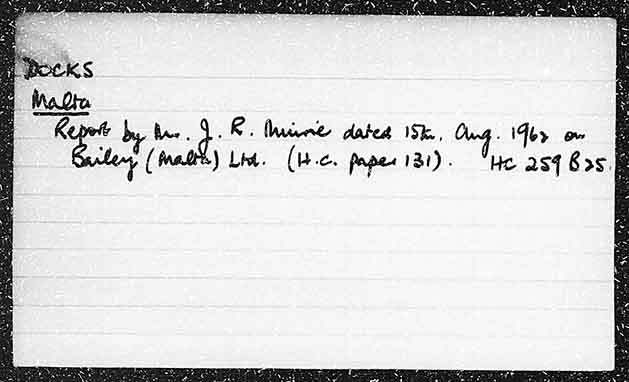 DOCKS
Malta
Report by Mr. J. R. Minnie dated 15th. Aug. 1962 on
Bailey (Malta) Ltd. (H.C. paper 131). HC 259 B25.